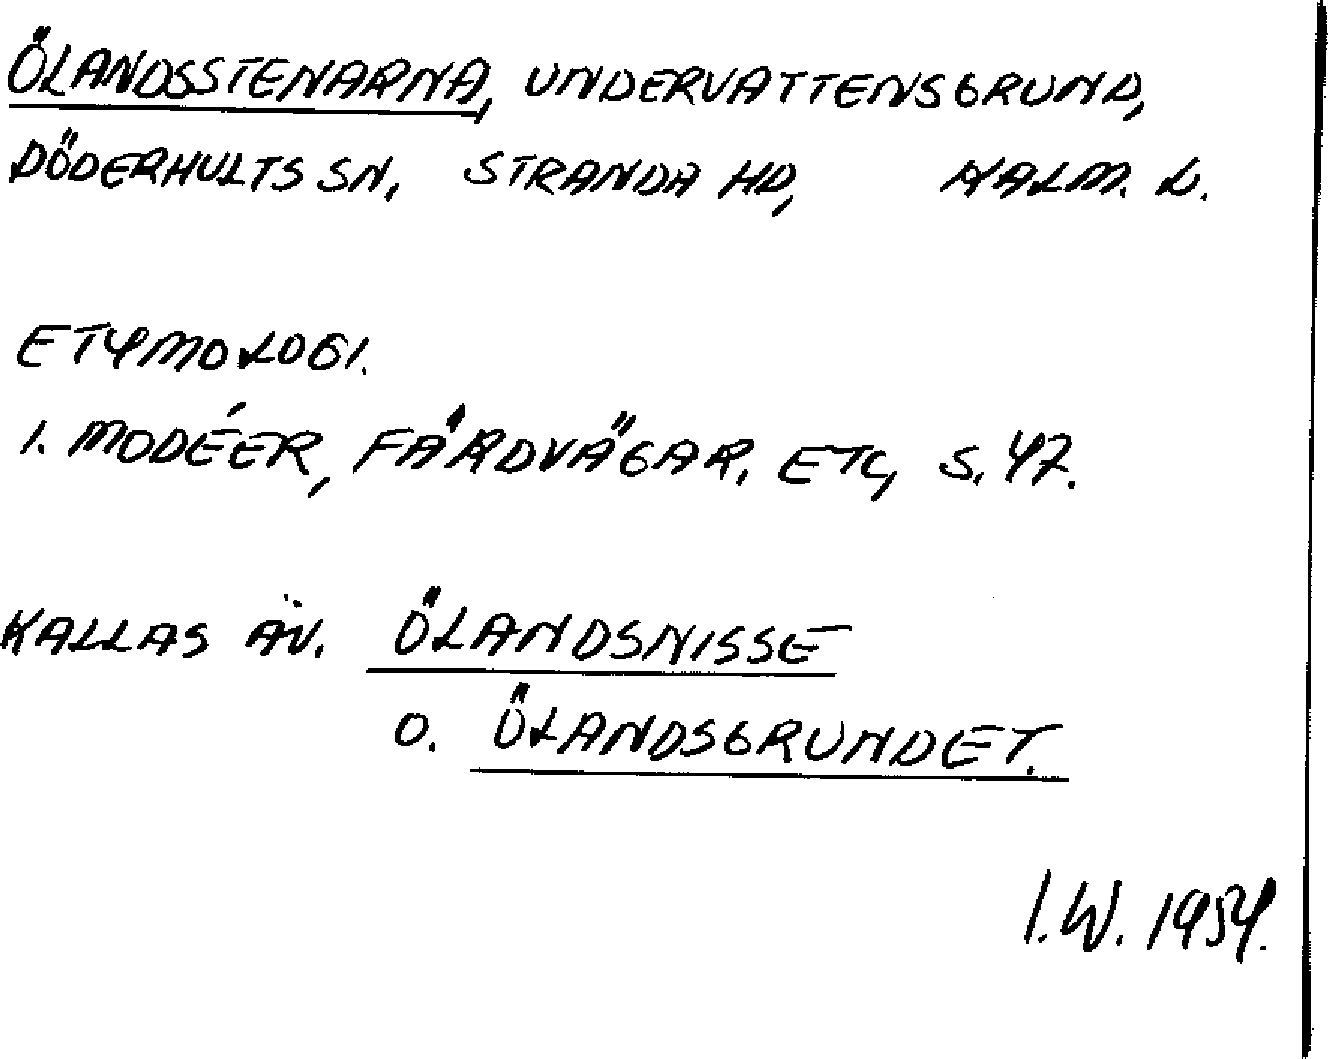 ÖLANDSSTENARNA, UNDERVATTENSGRUND,
DÖDERHULTS SN, STRANDA HD, KALM. L.
ETYMOLOGI.
I. MODÉER, FÄRDVÄGAR, ETC, S. 47.
KALLAS ÄV. ÖLANDSNISSE
O. ÖLANDSGRUNDET.
I.W. 1954.